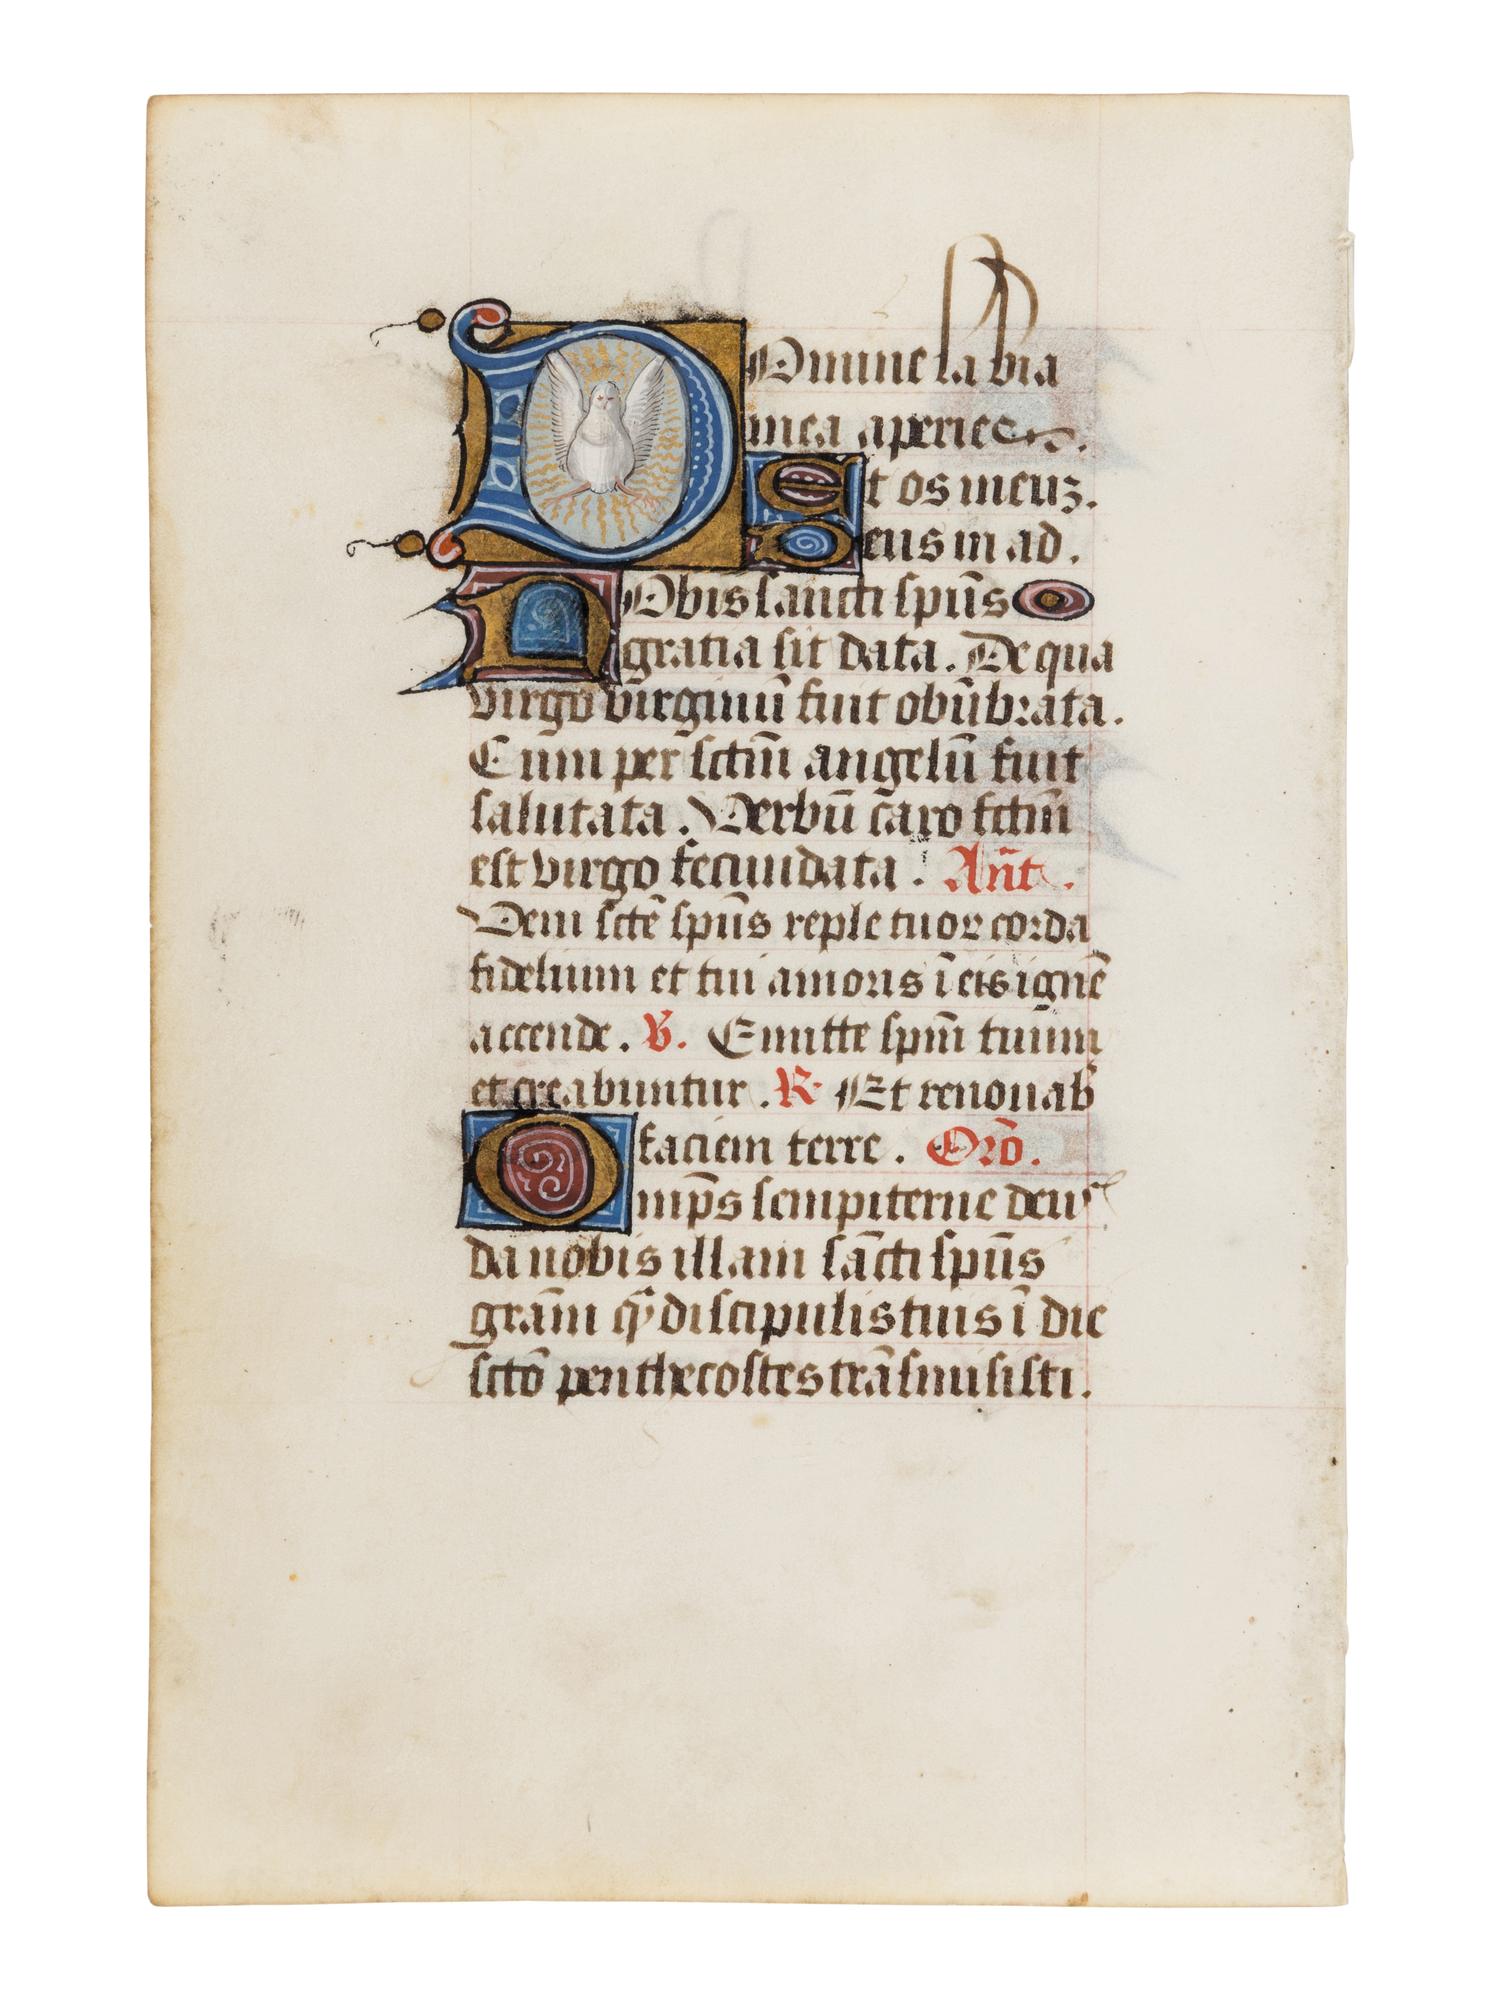 Domine labia
mea aperies.
Et os meuꝫ.
Deus in ad.
Nobis sancti spūs
gratia sit data. De qua
virgo virginū fuit obūbrata.
Cum per sctm̄ angelū fuit
salutata. Verbū caro fctm̄
est virgo fecundata. Ant̄.
Veni sctē spūs reple tuoꝝ corda
fidelium et tui amoris ī eis ignē
accende. V̄. Emitte spm̄ tuum
et creabuntur. R̄ Et renouab̄
faciem terre. Orō.
Omp̄s sempiterne deus
da nobis illam sācti spūs
grām qͣ discipulis tuis ī die
sctō penthecostes trāsmisisti.